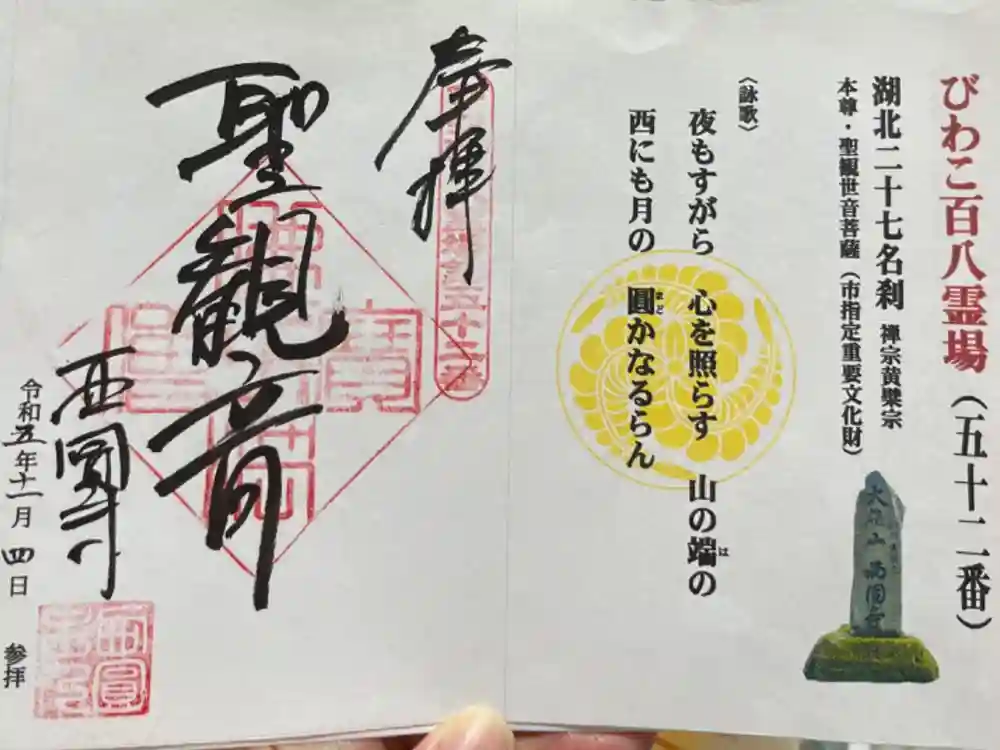 びわこ百八霊場(五十二番)
湖北二十七名刹 禅宗黄檗宗
本尊・聖観世音菩薩(市指定重要文化財)
〈詠歌〉
夜もすがら 心を照らす 山の端の
は
西にも月の 圓かなるらん
まど
奉拝
聖観音
西圓寺
令和五年十一月四日 参拝
西圓